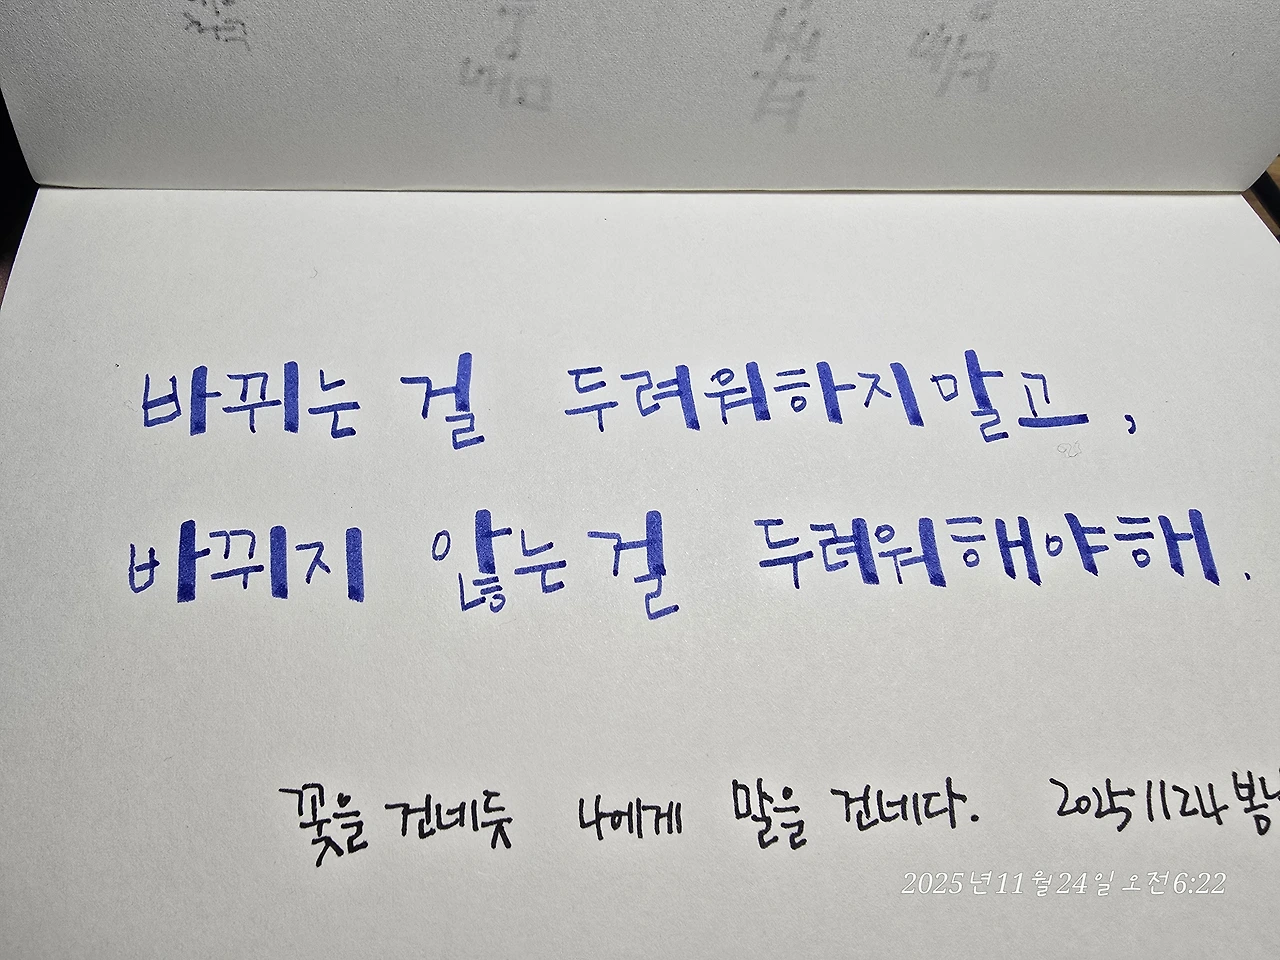 바뀌는 걸 두려워하지말고,
바뀌지 않는걸 두려워해야해.
꽃을 건네듯 나에게 말을 건네다. 20251124
2025년11월24일 오전6:22